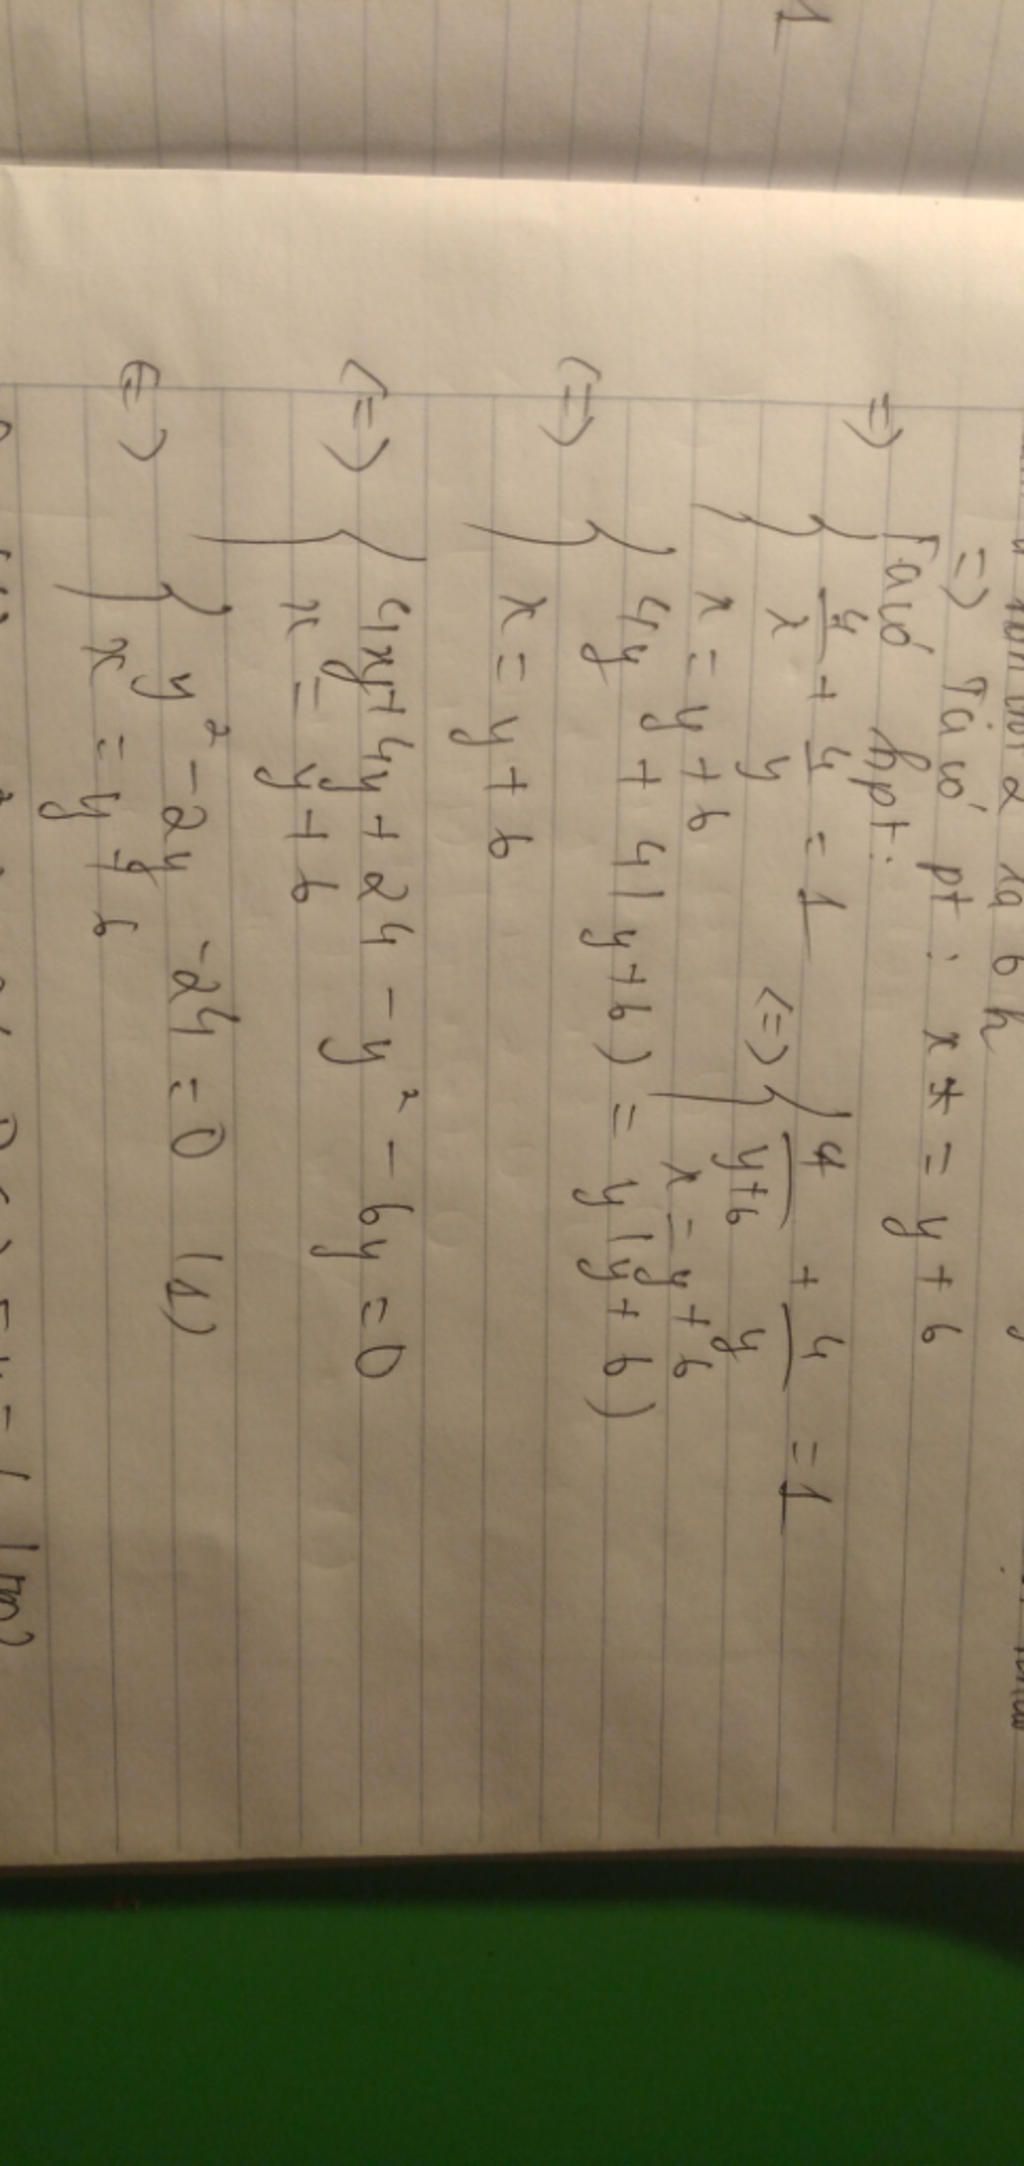 =) Ta có pt: x = y + 6
Ta có hpt:
=) { 4/x + 4/y = 1 <=> { 4/y+6 + 4/y = 1
x = y + 6 x = y + 6
<=> { 4y + 4(y+6) = y(y+6)
x = y + 6
<=> { 4y + 4y + 24 - y² - 6y = 0
x = y + 6
<=> { y² - 2y - 24 = 0 (1)
x = y + 6